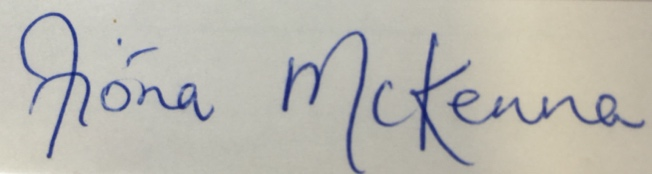 Fióna McKenna